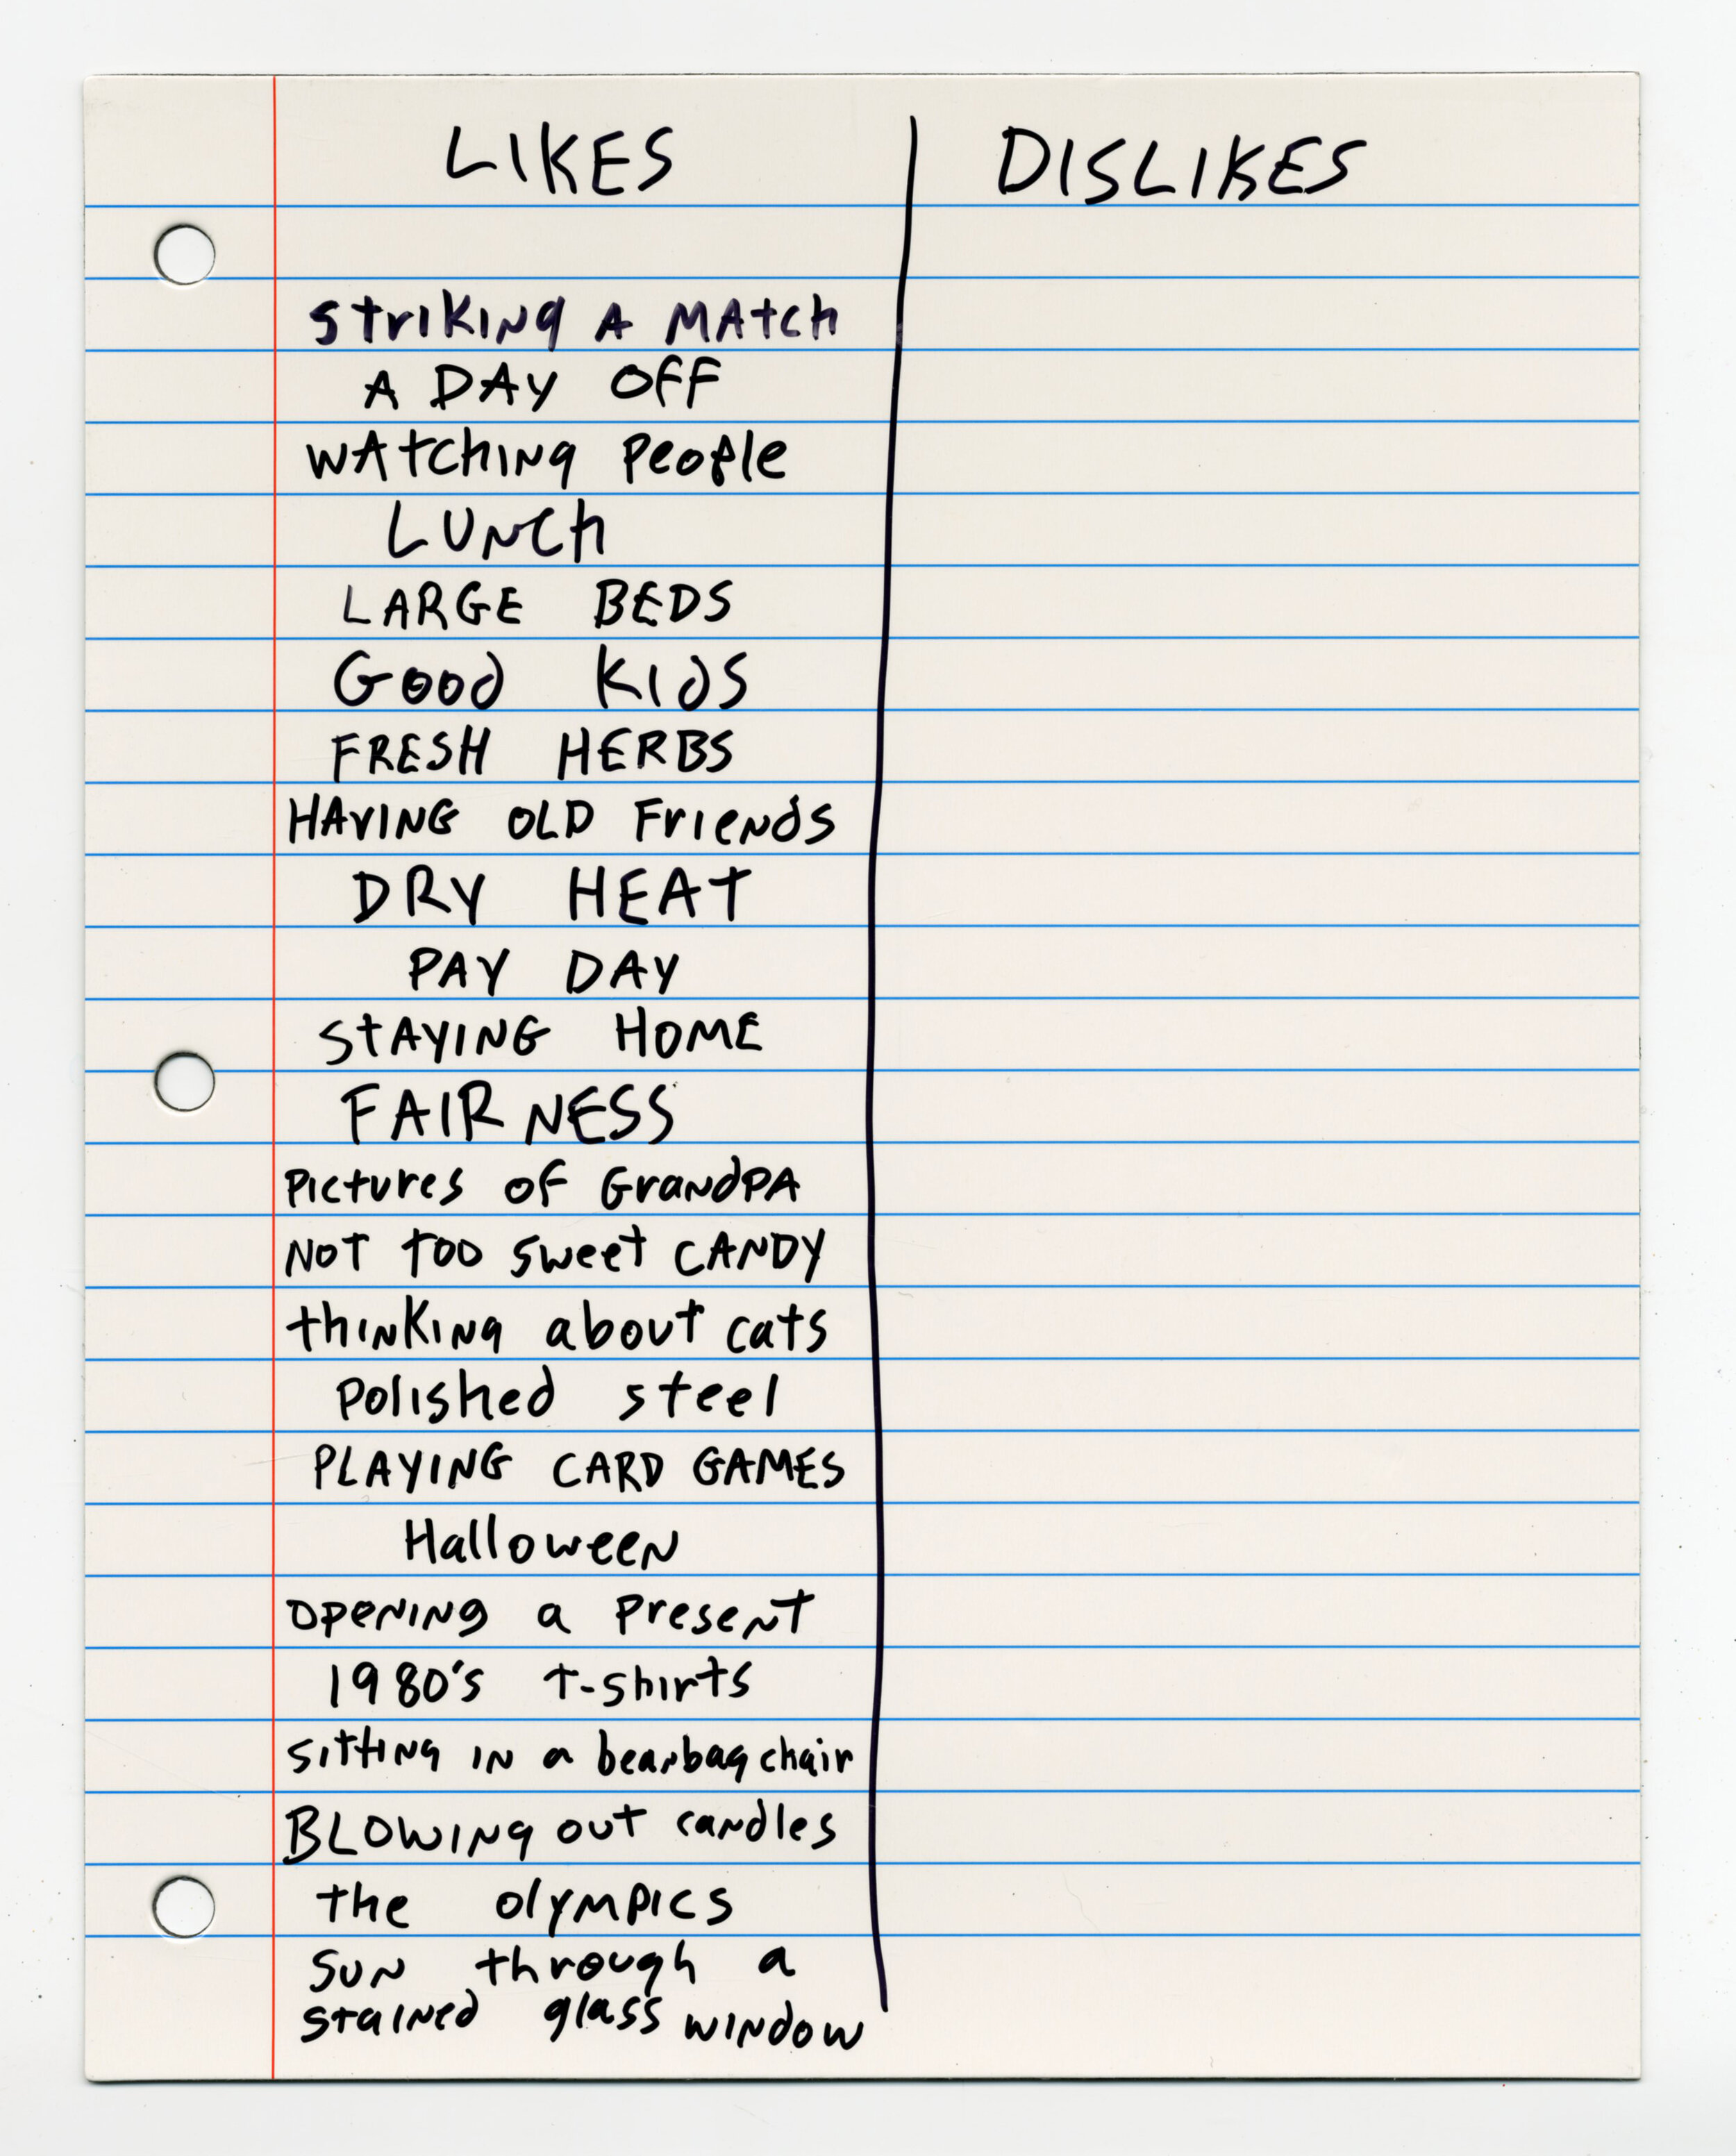 LIKES
DISLIKES
striking A MAtch
A DAY OFF
WAtching People
LUNCh
LARGE BEDS
Good Kids
FRESH HERBS
HAVING OLD Friends
DRY HEAT
PAY DAY
STAYING HOME
FAIRNESS
Pictures of GrandPA
NOT TOO sweet CANDY
thinking about cats
Polished steel
PLAYING CARD GAMES
Halloween
opening a Present
1980's T-shirts
sitting in a beanbag chair
BLOWING out candles
the olympics
sun through a
stained glass window